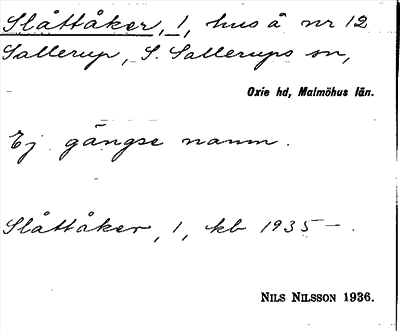 Slåttåker, 1, hus å nr 12
Sallerup, S. Sallerups sn,
Oxie hd, Malmöhus län.
Ej gängse namn.
Slåttåker, 1, kb 1935 – .
NILS NILSSON 1936.